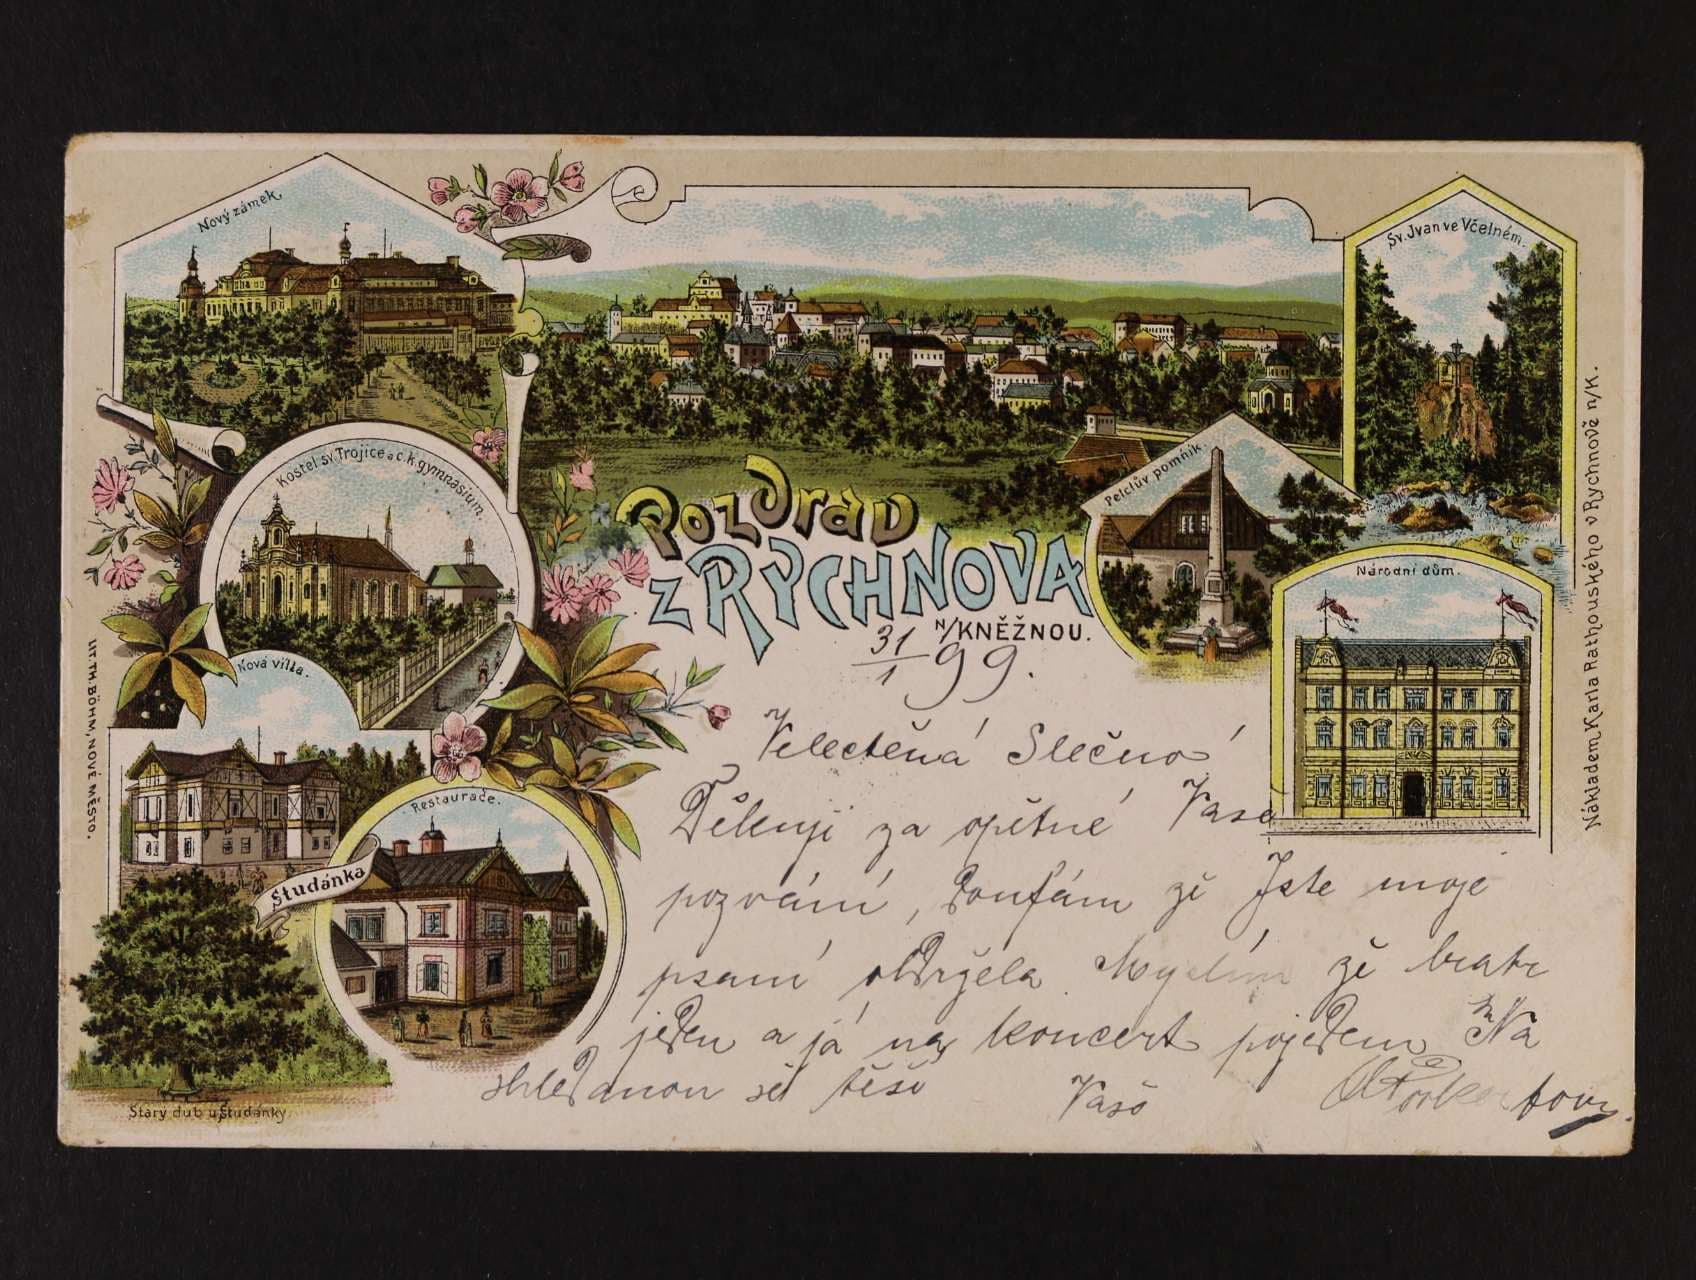 Nový zámek.
Sv. Jvan ve Včelném.
Kostel sv. Trojice a c. k. gymnasium.
Pelclův pomník.
Pozdrav
z RYCHNOVA
n/KNĚŽNOU.
Národní dům.
Nová villa.
Restaurace.
Studánka
Starý dub u Studánky.
LIT. TH. BÖHM, NOVÉ MĚSTO.
Nákladem Karla Rathouského v Rychnově n/K.
31/1 99.
Velectěná Slečno
Děkuji za opětné Vase
pozvání, doufám že Jste moje
psaní obdržela Myslím že bratr
jeden a já na koncert pojedem Na
shledanou se těší
Vaše